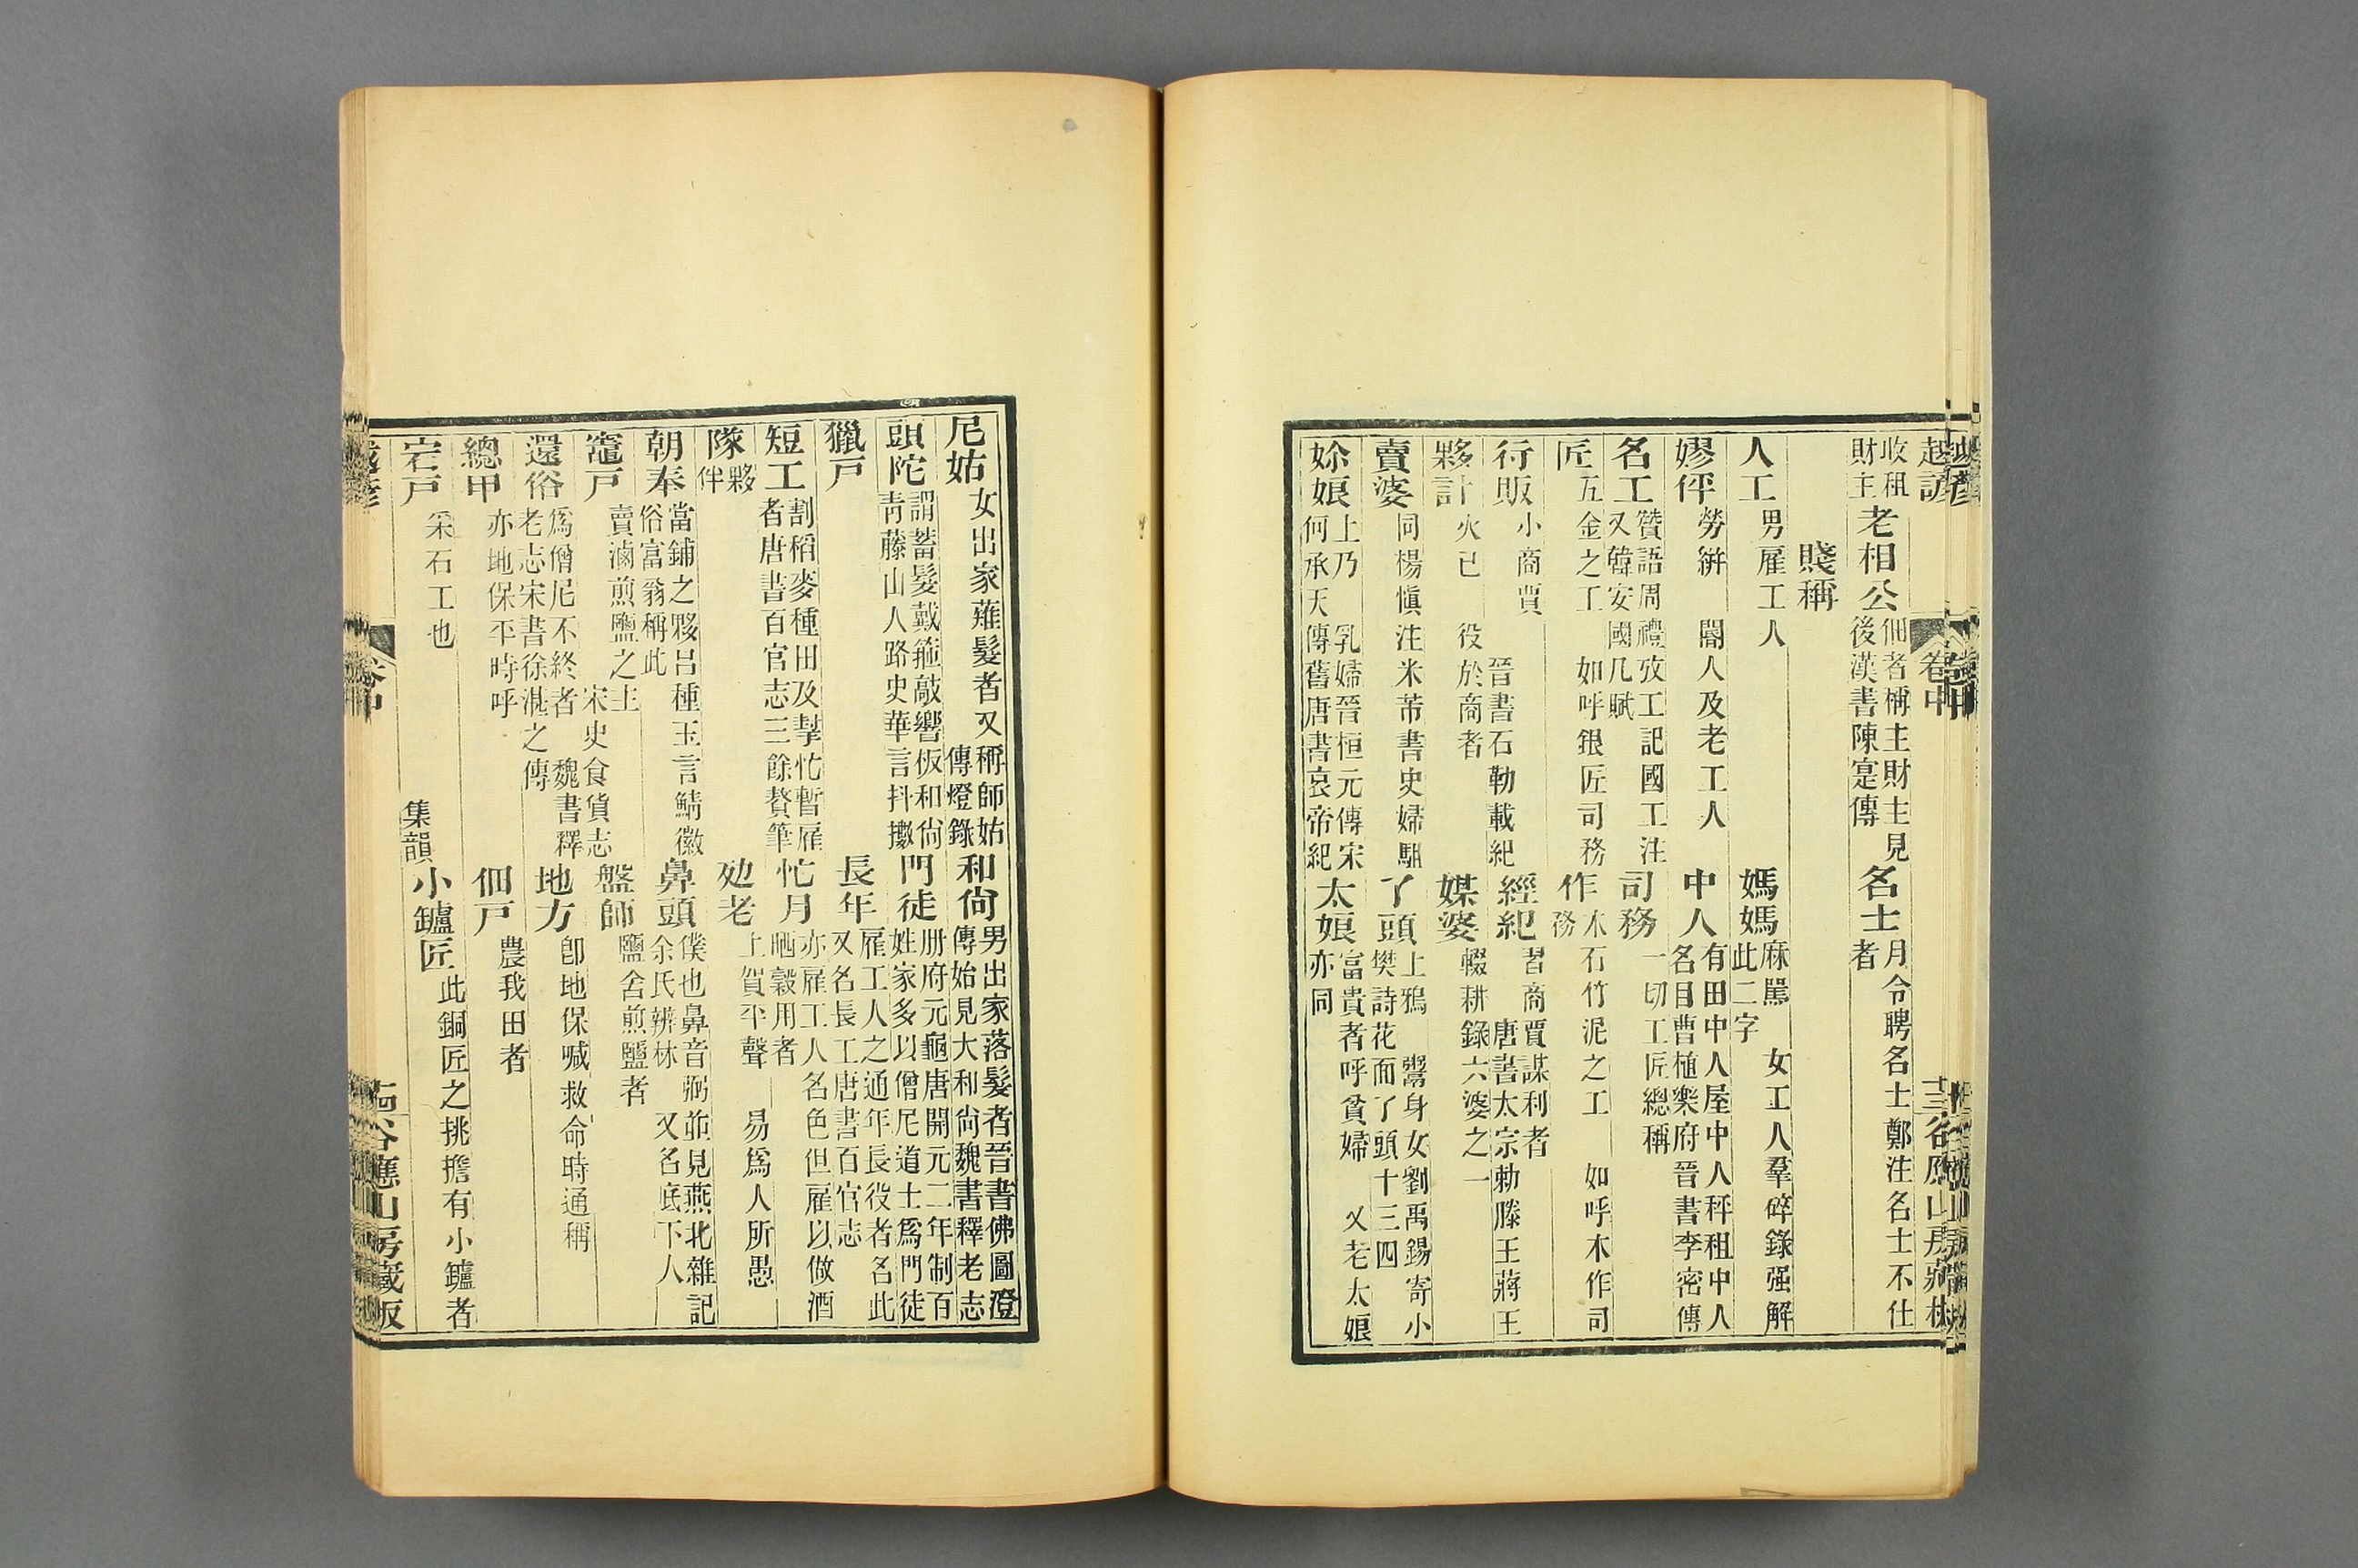 越諺 卷中 十三 谷應山房藏板
收租財主 老相公 佃者稱主財主見後漢書陳寔傳 名士 月令聘名士鄭注名士不仕者
賤稱
人工 男雇工人 媽媽 麻駡此二字 女工人羣碎錄强解
嫪伻 勞絣 閽人及老工人 中人 有田中人屋中人秤租中人名目曹植樂府晉書李密傳
名工 贊語周禮攷工記國工注又韓安國几賦 司務 一切工匠總稱
匠 五金之工 如呼銀匠司務 作 木石竹泥之工 如呼木作司務
行販 小商賈 晉書石勒載紀 經紀 習商賈謀利者 唐書太宗勅滕王蔣王
夥計 火已 役於商者 媒婆 輟耕錄六婆之一
賣婆 同楊愼注米芾書史婦駔 了頭 上鴉 鬻身女劉禹錫寄小樊詩花面了頭十三四
妳娘 上乃 乳婦晉桓元傳宋何承天傳舊唐書哀帝紀 太娘 富貴者呼貧婦 又老太娘亦同
尼姑 女出家薙髮者又稱師姑傳燈錄 和尙 男出家落髮者晉書佛圖澄傳始見大和尙魏書釋老志
頭陀 謂蓄髮戴箍敲響板和尙靑藤山人路史華言抖擻 門徒 册府元龜唐開元二年制百姓家多以僧尼道士爲門徒
獵戸 長年 雇工人之通年長役者名此又名長工唐書百官志
短工 割稻麥種田及挐忙暫雇者唐書百官志三餘贅筆 忙月 亦雇工人名色但雇以做酒晒穀用者
隊 夥伴 㚲老 上賀平聲 易爲人所愚
朝奉 當鋪之夥呂種玉言鯖徽俗富翁稱此 鼻頭 僕也鼻音弼並見燕北雜記余氏辨林 又名底下人
竈戸 賣滷煎鹽之主 宋史食貨志 盤師 鹽舍煎鹽者
還俗 爲僧尼不終者 魏書釋老志宋書徐湛之傳 地方 卽地保喊救命時通稱
總甲 亦地保平時呼 佃戸 農我田者
宕戸 采石工也 集韻 小鑪匠 此銅匠之挑擔有小鑪者
越諺 卷中 谷應山房藏板